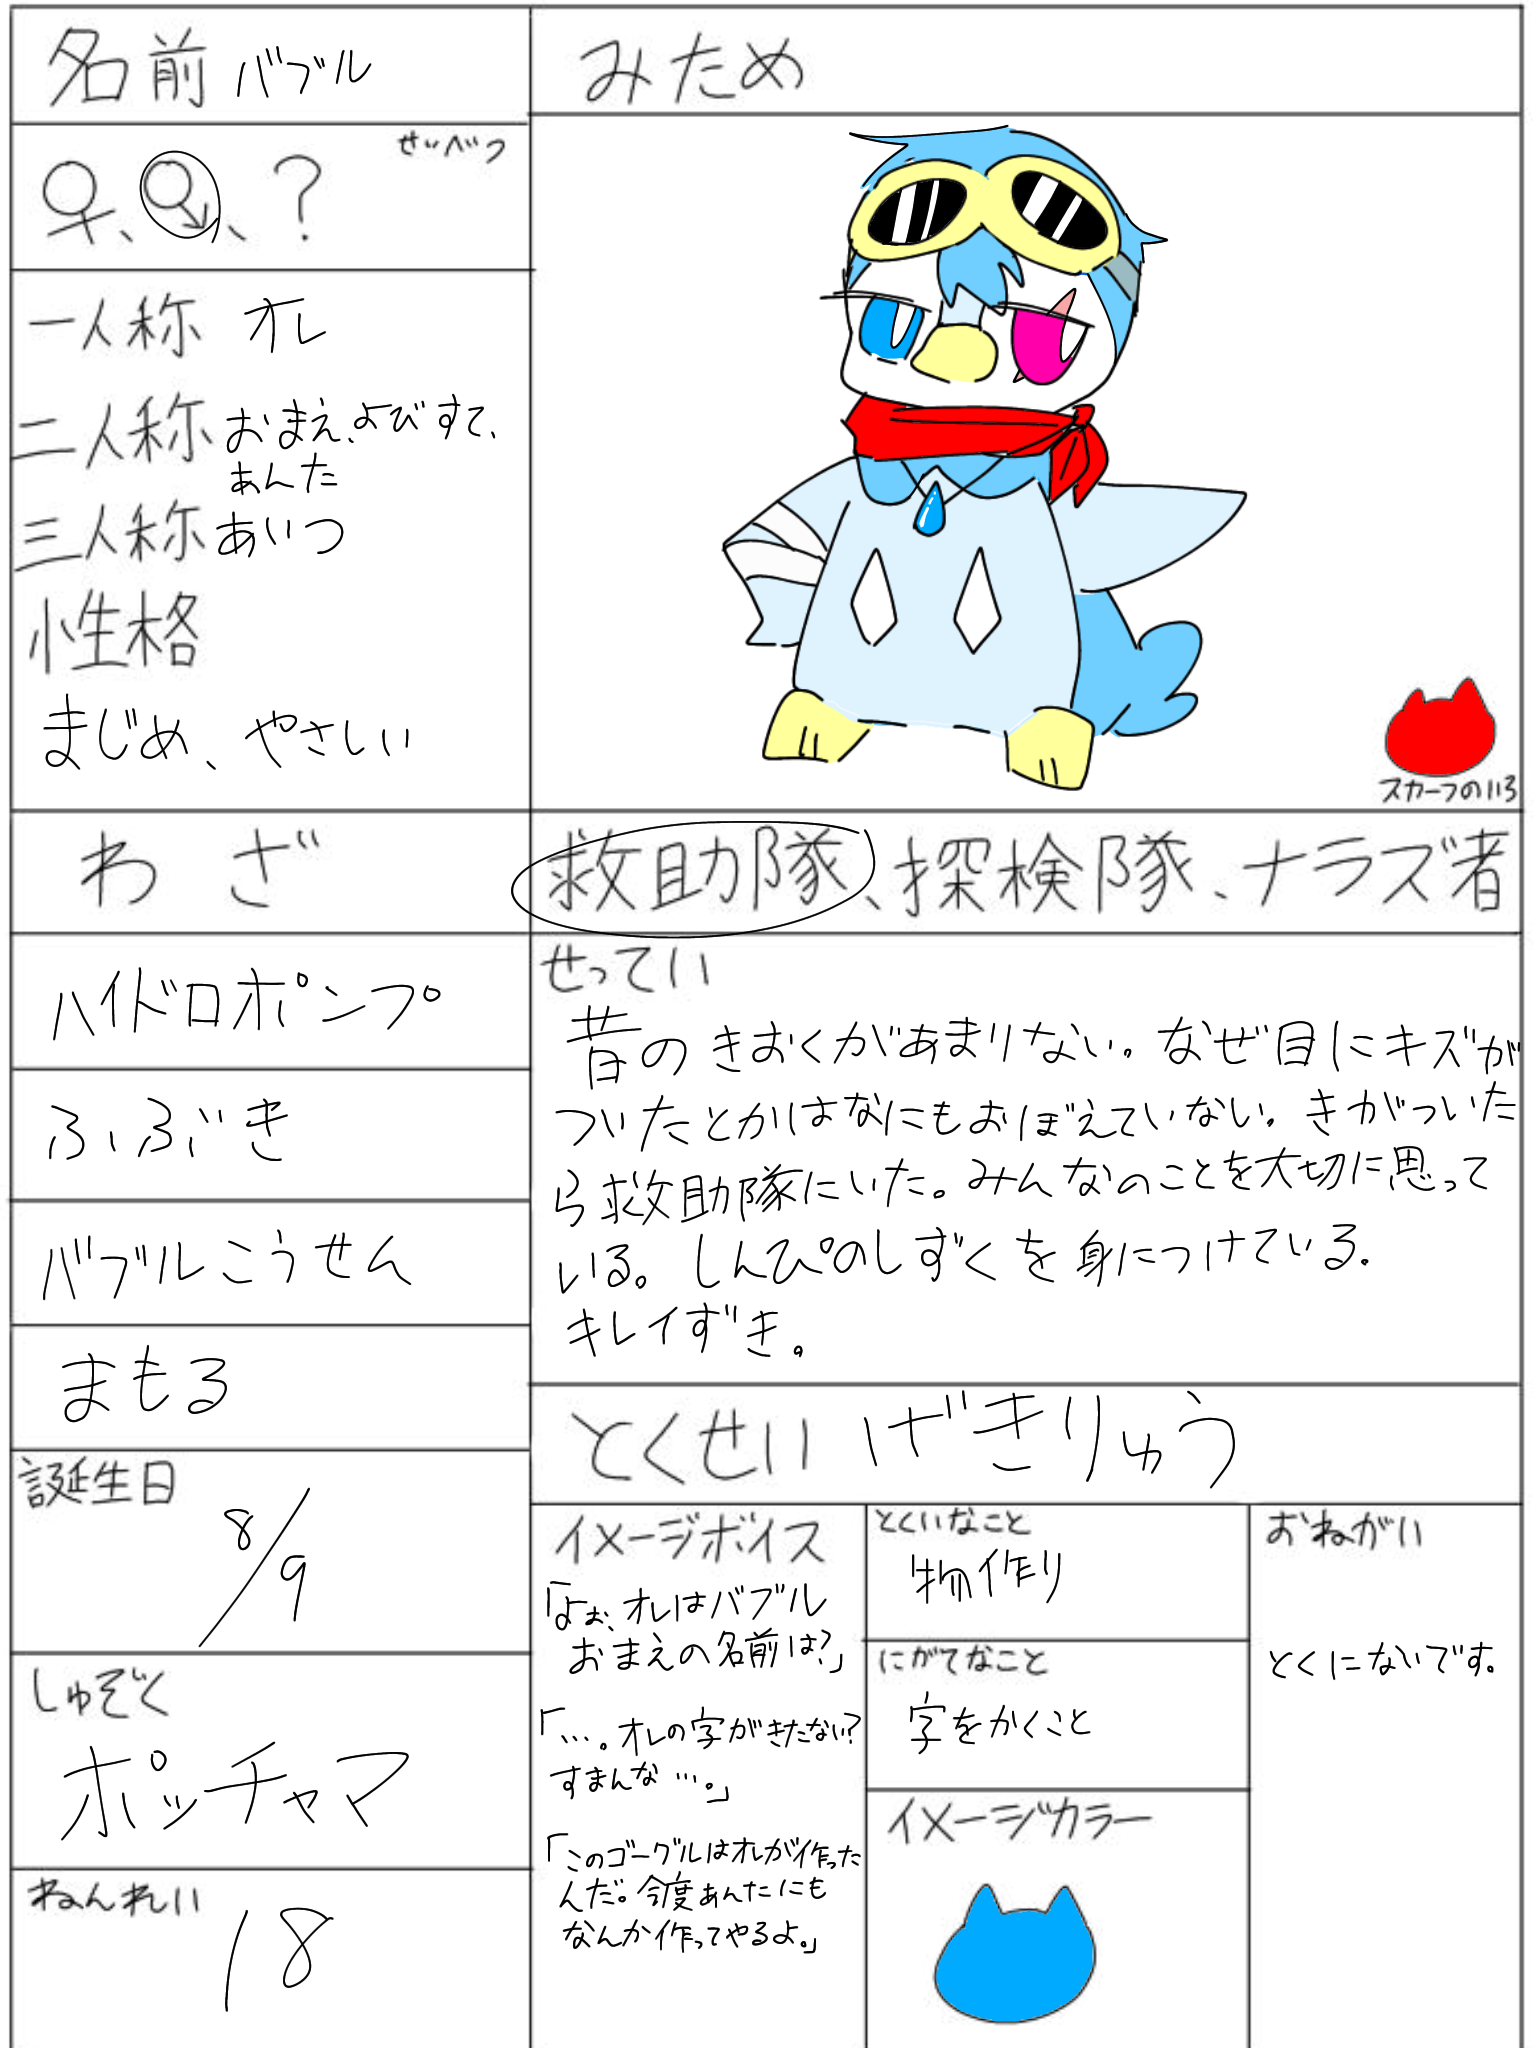 名前 バブル
みため
せいべつ
♀、♂、?
一人称 オレ
二人称 おまえ、よびすて、
あんた
三人称 あいつ
性格
まじめ、やさしい
スカーフのいろ
わざ
救助隊、探検隊、ナラズ者
ハイドロポンプ
ふぶき
バブルこうせん
まもる
せってい
昔のきおくがあまりない。なぜ目にキズが
ついたとかはなにもおぼえていない。きがついた
ら救助隊にいた。みんなのことを大切に思って
いる。しんぴのしずくを身につけている.
キレイずき。
とくせい げきりゅう
誕生日
8/9
しゅぞく
ポッチャマ
ねんれい
18
イメージボイス
「よぉ、オレはバブル
おまえの名前は?」
「…。オレの字がきたない?
すまんな…。」
「このゴーグルはオレが作った
んだ。今度あんたにも
なんか作ってやるよ。」
とくいなこと
物作り
にがてなこと
字をかくこと
イメージカラー
おねがい
とくにないです。